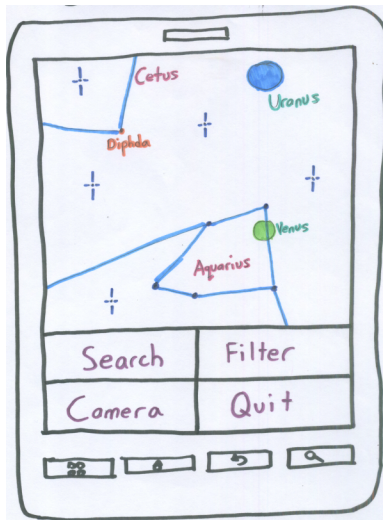 Cetus
Uranus
Diphda
Venus
Aquarius
Search Filter
Camera Quit